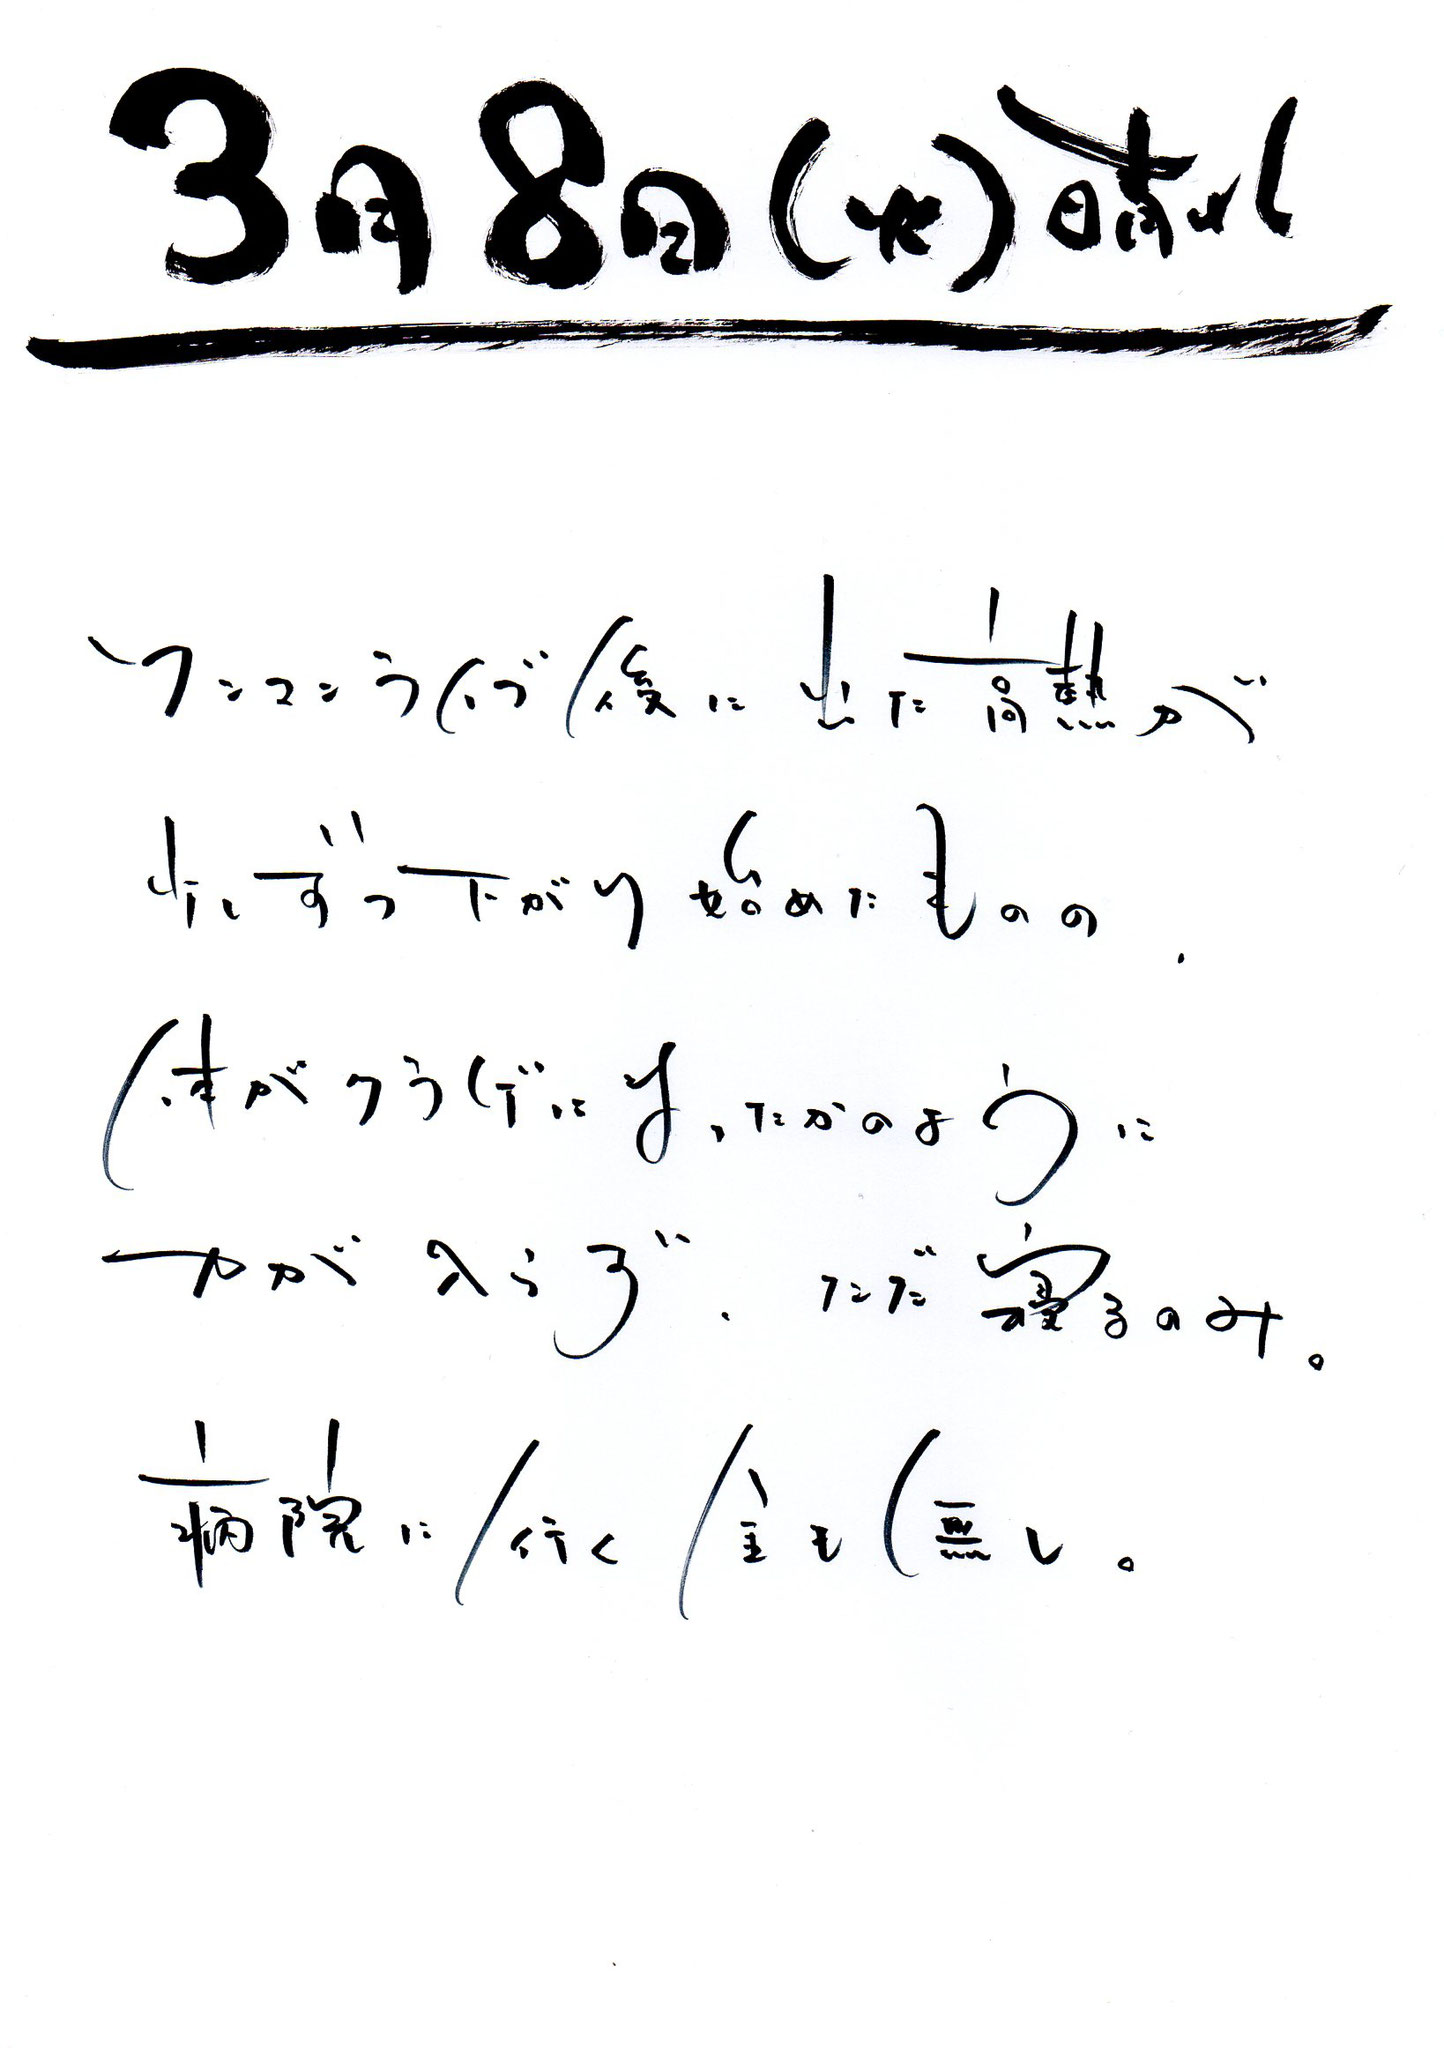 3月8日(火)晴れ
ワンマンライブ後に出た高熱が
少しずつ下がり始めたものの、
体がクラゲになったかのように
力が入らず、ただ寝るのみ。
病院に行く金も無し。